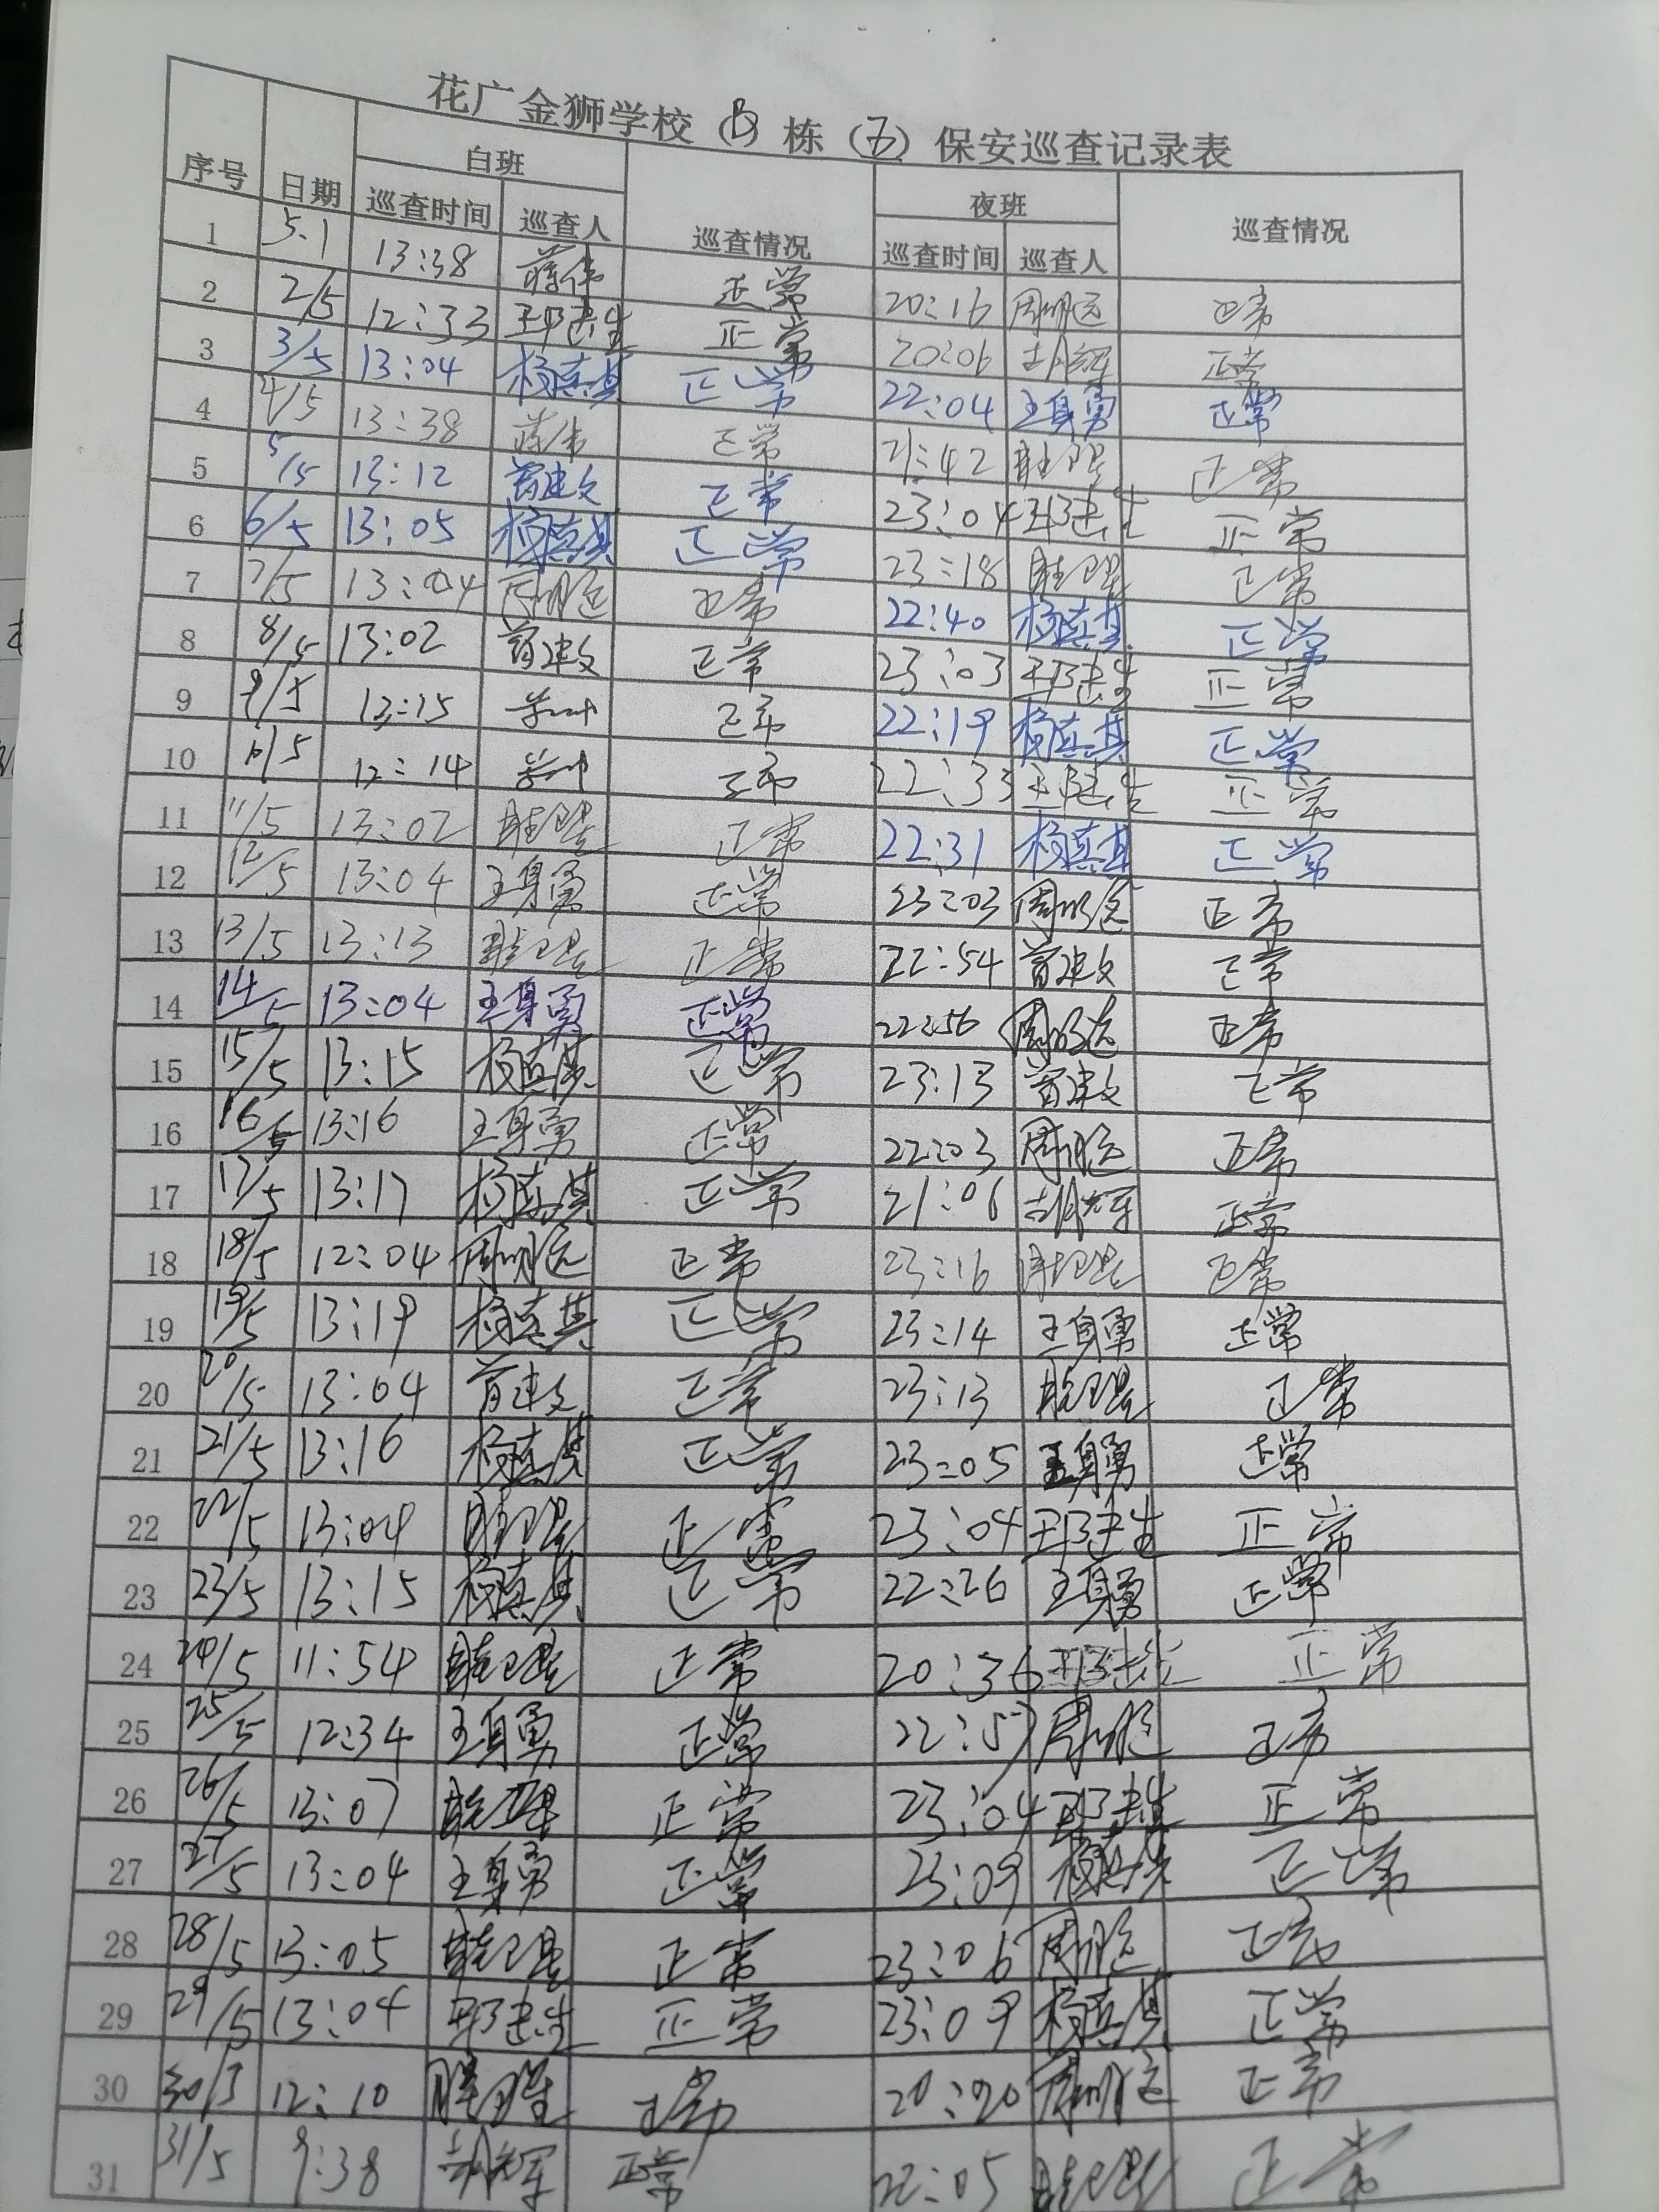 花广金狮学校(B)栋(5)保安巡查记录表
序号 日期 白班 巡查情况 夜班 巡查情况
巡查时间 巡查人 巡查时间 巡查人
1 5.1 13:38 蒋伟 正常 20:16 周明远 正常
2 2/5 12:33 王邵建生 正常 20:06 正常
3 3/5 13:04 杨真其 正常 22:04 王身勇 正常
4 4/5 13:38 蒋伟 正常 21:42 正常
5 5/5 13:12 首建文 正常 23:04 正常
6 6/5 13:05 杨真其 正常 23:18 正常
7 7/5 13:04 周明远 正常 22:40 杨真其 正常
8 8/5 13:02 首建文 正常 23:03 正常
9 9/5 13:15 正常 22:19 杨真其 正常
10 10/5 12:14 正常 22:33 正常
11 11/5 13:02 正常 22:31 杨真其 正常
12 12/5 13:04 王身勇 正常 23:03 周明远 正常
13 13/5 13:13 正常 22:54 首建文 正常
14 14/5 13:04 王身勇 正常 22:56 周明远 正常
15 15/5 13:15 杨真其 正常 23:13 首建文 正常
16 16/5 13:16 王身勇 正常 22:03 周明远 正常
17 17/5 13:17 杨真其 正常 21:06 正常
18 18/5 12:04 周明远 正常 23:16 正常
19 19/5 13:19 杨真其 正常 23:14 王身勇 正常
20 20/5 13:04 首建文 正常 23:13 正常
21 21/5 13:16 杨真其 正常 23:05 王身勇 正常
22 22/5 13:04 正常 23:04 正常
23 23/5 13:15 杨真其 正常 22:26 王身勇 正常
24 24/5 11:54 正常 20:36 正常
25 25/5 12:34 王身勇 正常 22:57 周明远 正常
26 26/5 13:07 正常 23:04 正常
27 27/5 13:04 王身勇 正常 23:09 杨真其 正常
28 28/5 13:05 正常 23:06 周明远 正常
29 29/5 13:04 正常 23:09 杨真其 正常
30 30/5 12:10 正常 20:20 周明远 正常
31 31/5 9:38 正常 22:05 正常